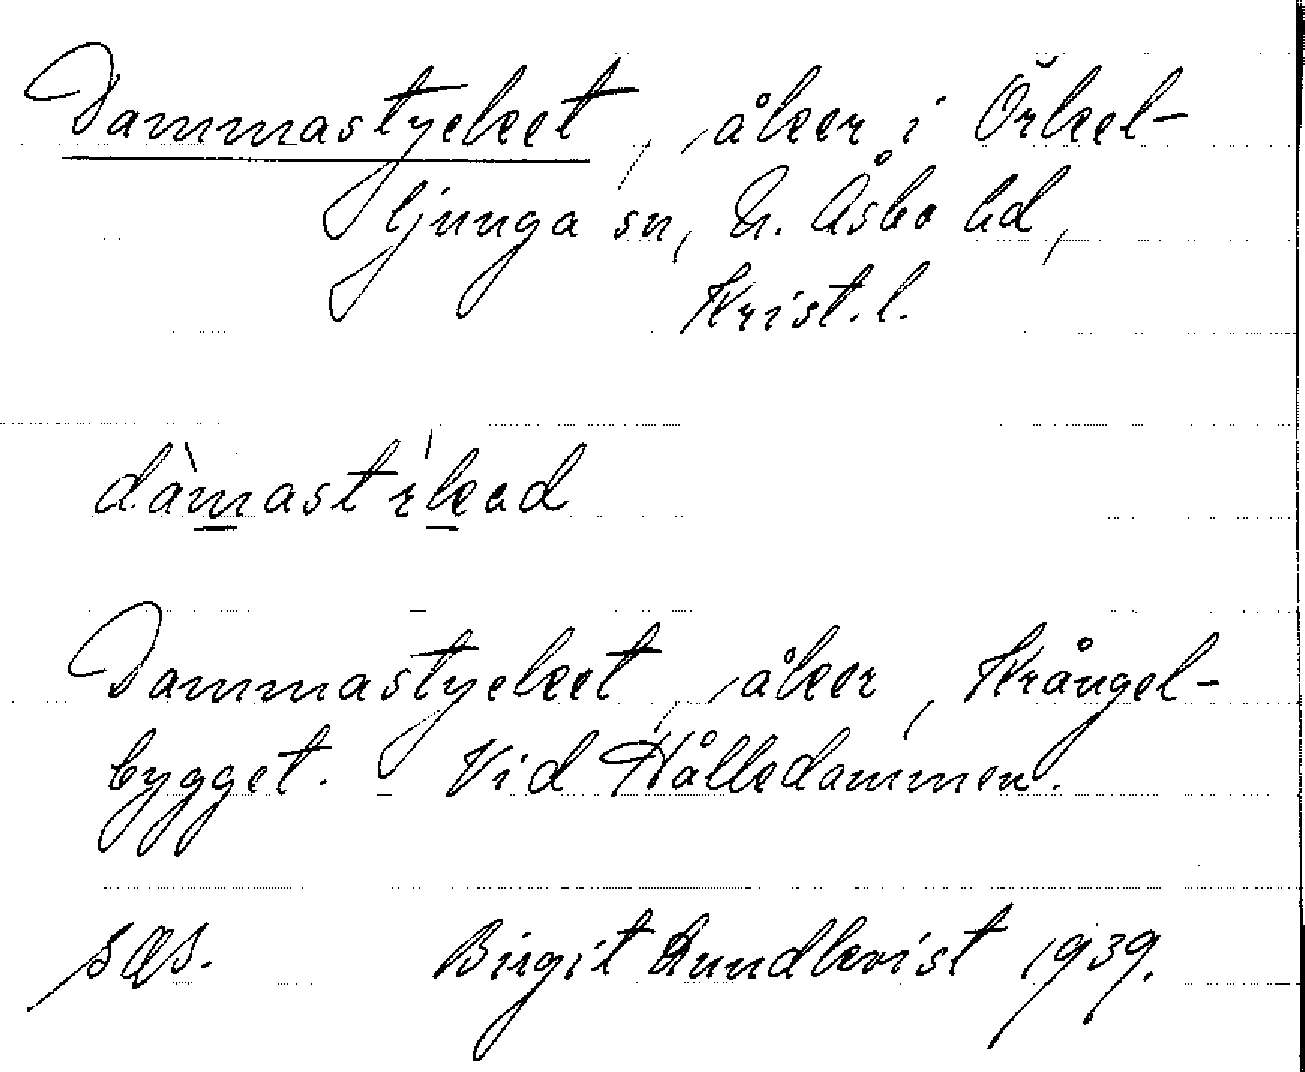 Dammastycket, åker i Örkel-
ljunga sn, N. Åsbo hd,
Krist. l.
dàmastýkad
Dammastycket, åker, Krångel-
bygget. Vid Hålledammen.
Birgit Lundkvist 1939.